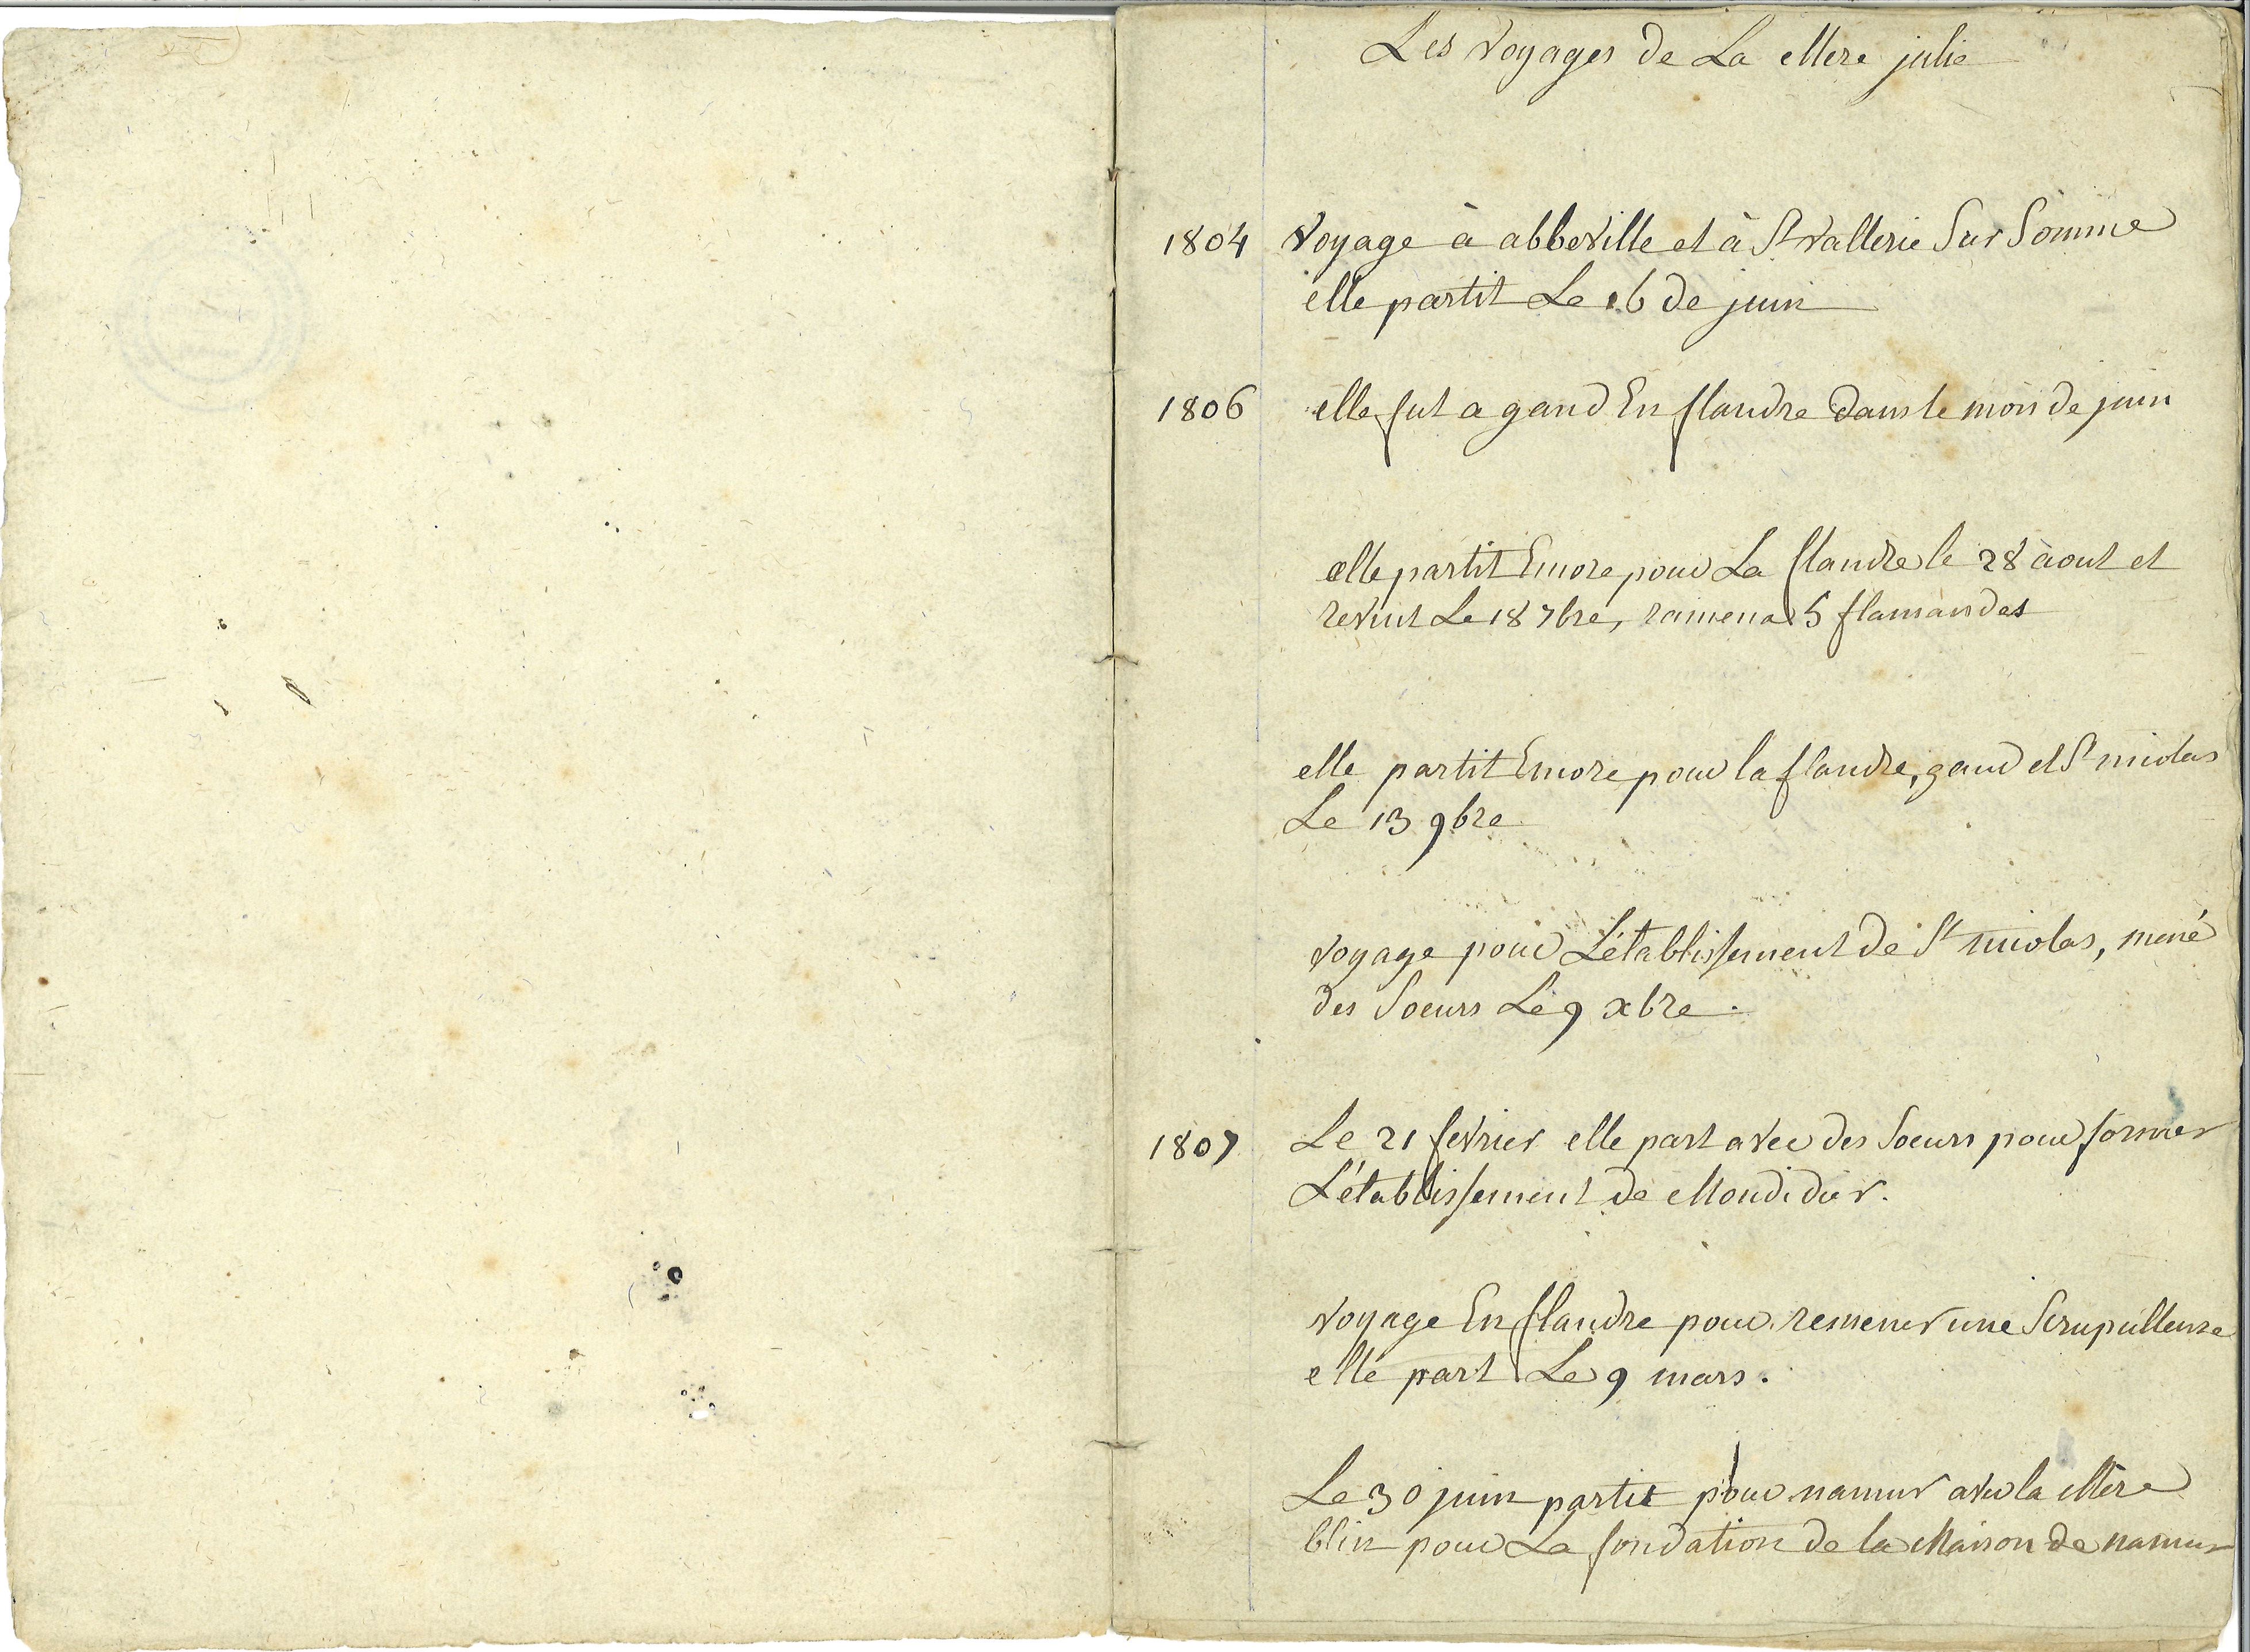 Les voyages de La Mere julie
1804 voyage à abbeville et à St vallerie Sur Somme
elle partit Le 16 de juin
1806 elle fut a gand En flandre dans le mois de juin
elle partit Encore pour La flandre le 28 aout et
revint Le 18 7bre, ramena 5 flamandes
elle partit Encore pour la flandre, gand et St nicolas
Le 13 9bre
voyage pour L'établissement de St nicolas, mené
des Soeurs Le 9 xbre.
1807 Le 21 fevrier elle part avec des Soeurs pour former
L'établissement de Mondidier.
voyage En flandre pour remener une Scrupulleuse
elle part Le 9 mars.
Le 30 juin partit pour namur avec la Mère
blin pour La fondation de la Maison de namur